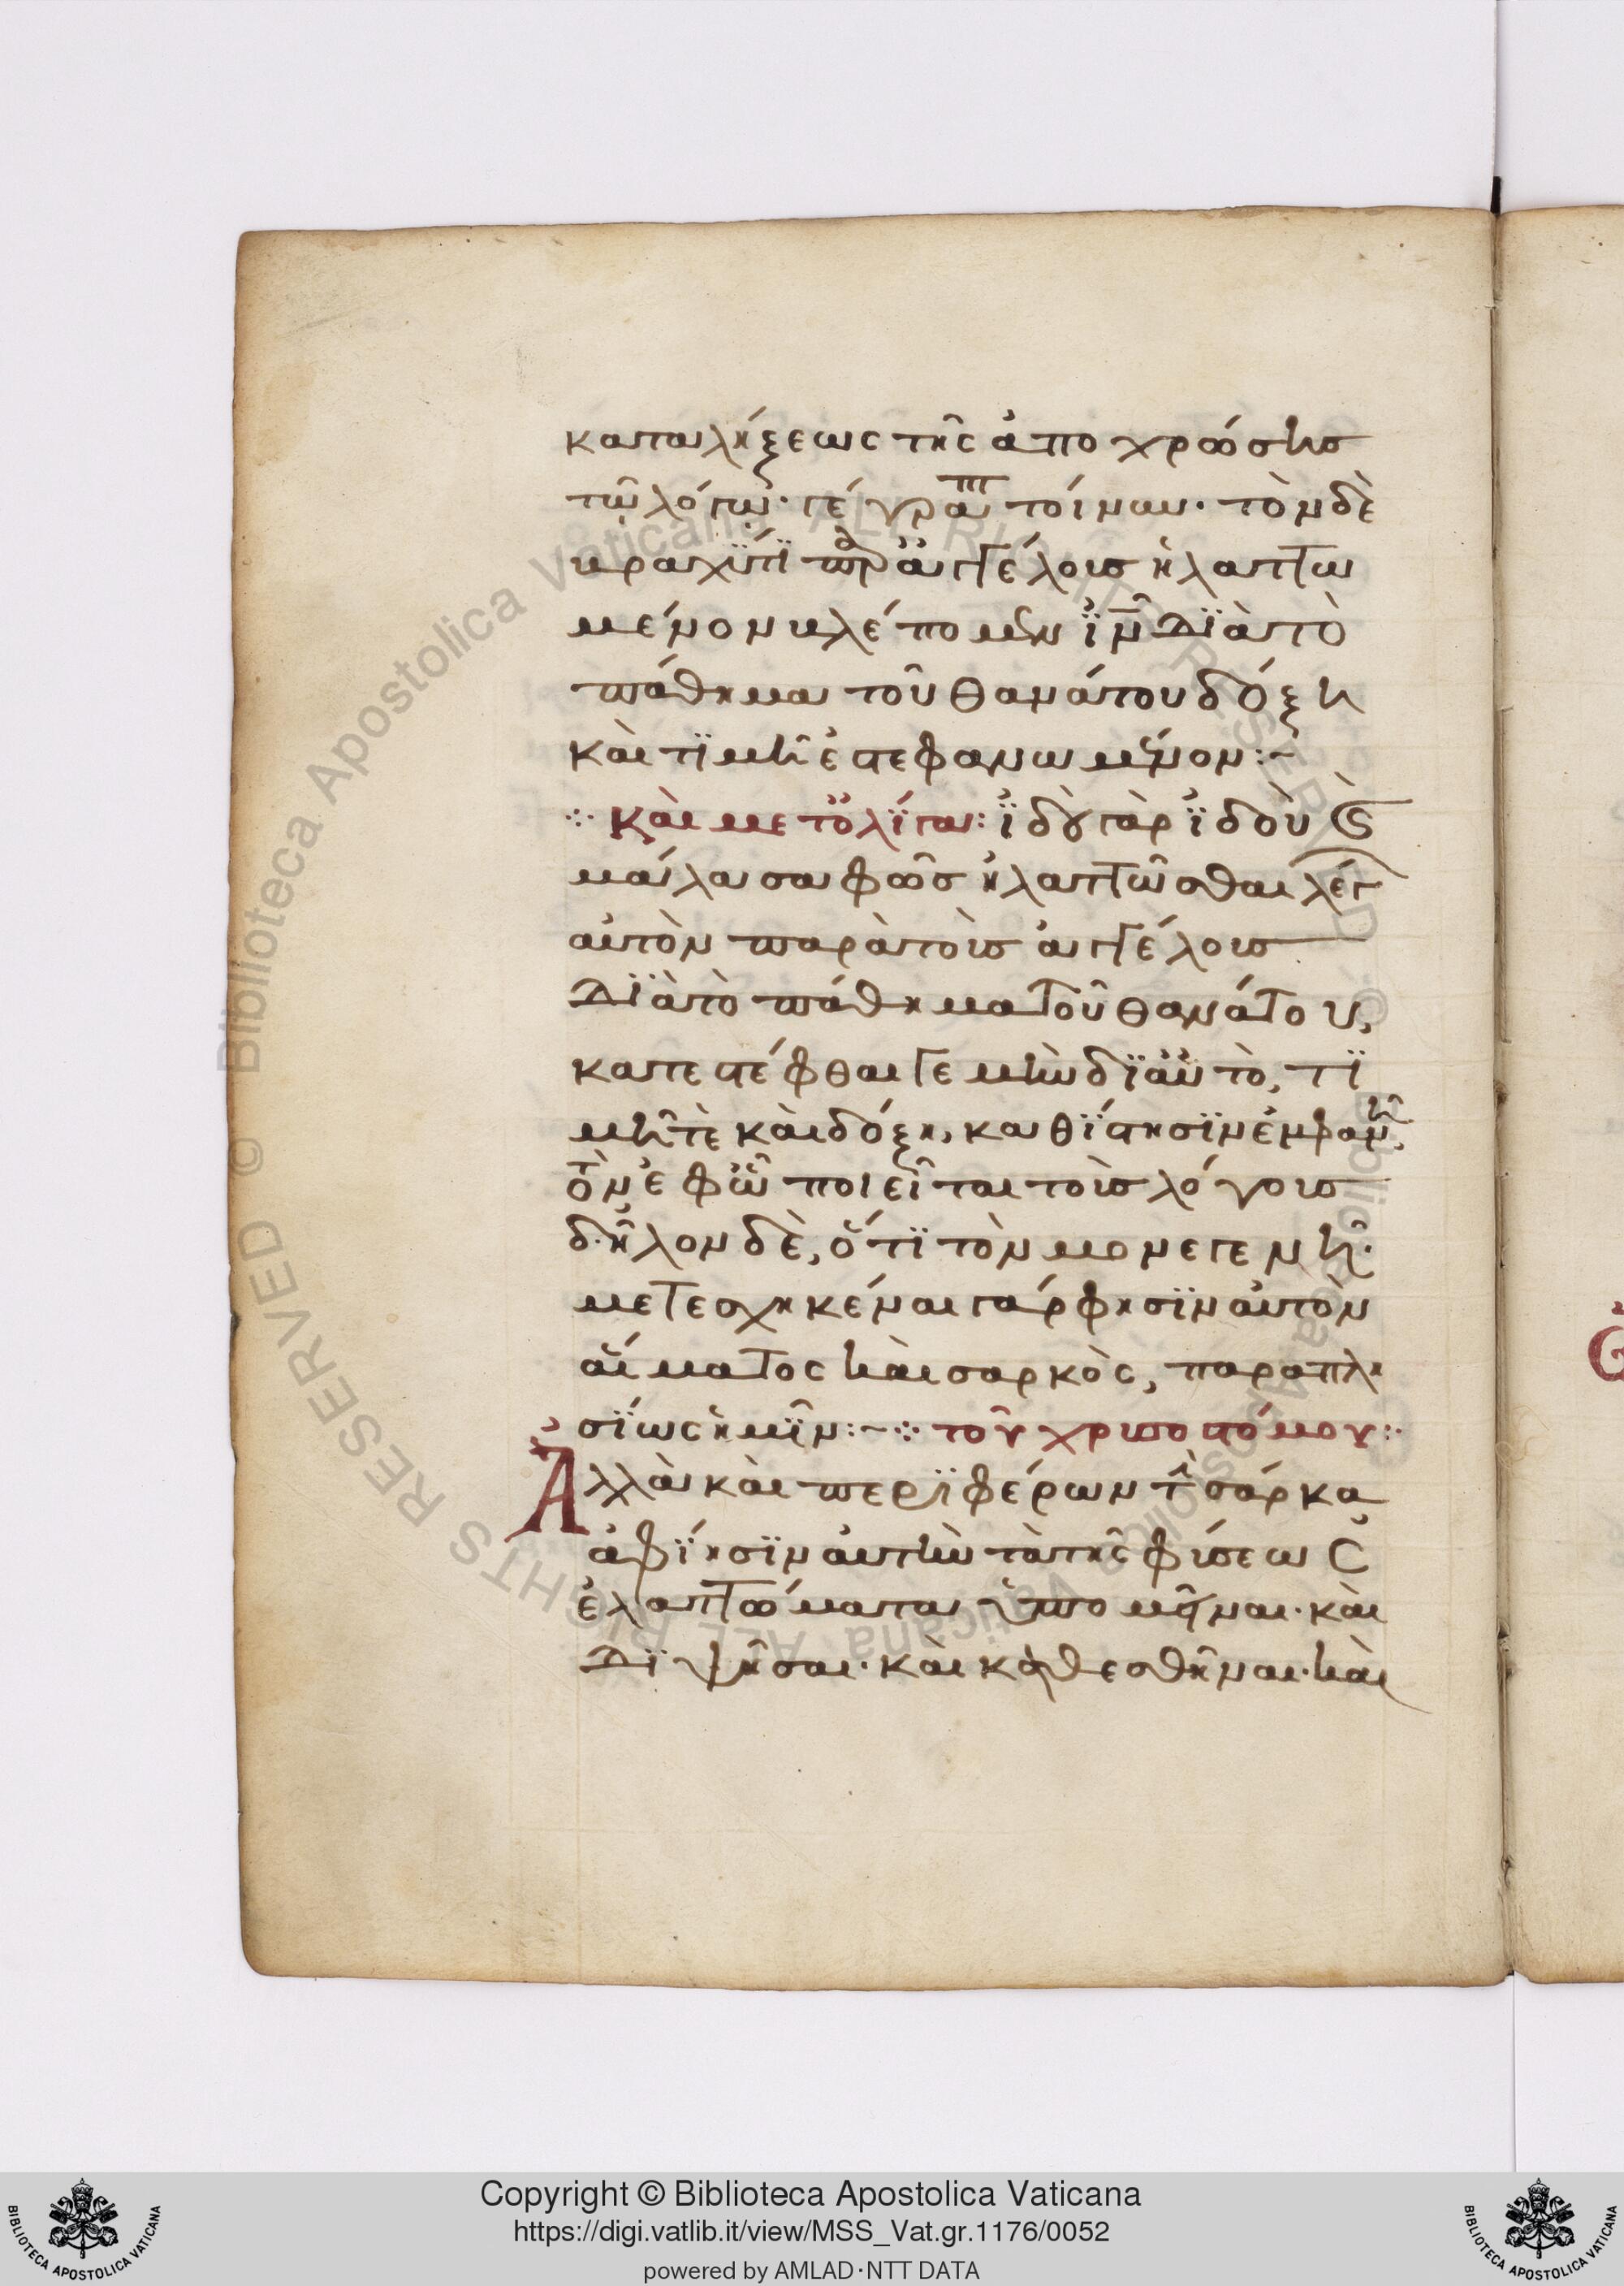 καταλήξεως τῆς ἀποχρώσης
τῷ λόγῳ· γέγραπτ τοίνυν· τὸν δὲ
βραχύτι παρ ἀγγέλους ἠλαττω
μένον βλέπομεν ἰν διὰ τὸ
πάθημα τοῦ θανάτου δόξη
καὶ τϊμῆ ἐστεφανωμένον :~
⁘ καὶ μετ ὀλίγα: ἰδοὺ γὰρ ἰδοὺ καὶ
μάλα σαφῶς ἠλαττῶσθαι λέγ
αὐτὸν παρὰ τοὺς ἀγγέλους
διὰ τὸ πάθημα τοῦ θανάτου,
κατεστέφθαι γε μὴν δϊ αὐτὸ, τϊ
μῆ τὲ καὶ δόξη, καθίστησϊν ἐμφανῆ,
τὸν ἐφ ὧ ποιεῖται τοὺς λόγους
δῆλον δὲ, ὅτϊ τὸν μονεγενῆ·
μετεσχηκέναι γάρ φησϊν αὐτὸν
αἵματος καὶ σαρκὸς, παραπλη
σίως ἡμῖν :~ ⁘ τοῦ χρυσοστόμου :·
Ἀλλὰ καὶ περϊφέρων τ σάρκα
ἀφίησϊν αὐτὴν τὰ τῆς φύσεως
ἐλαττώματα ὑπομεῖναι· καὶ
δϊψῆσαι· καὶ καθεσθῆναι· καὶ
Copyright © Biblioteca Apostolica Vaticana
https://digi.vatlib.it/view/MSS_Vat.gr.1176/0052
powered by AMLAD·NTT DATA
BIBLIOTECA APOSTOLICA VATICANA
BIBLIOTECA APOSTOLICA VATICANA